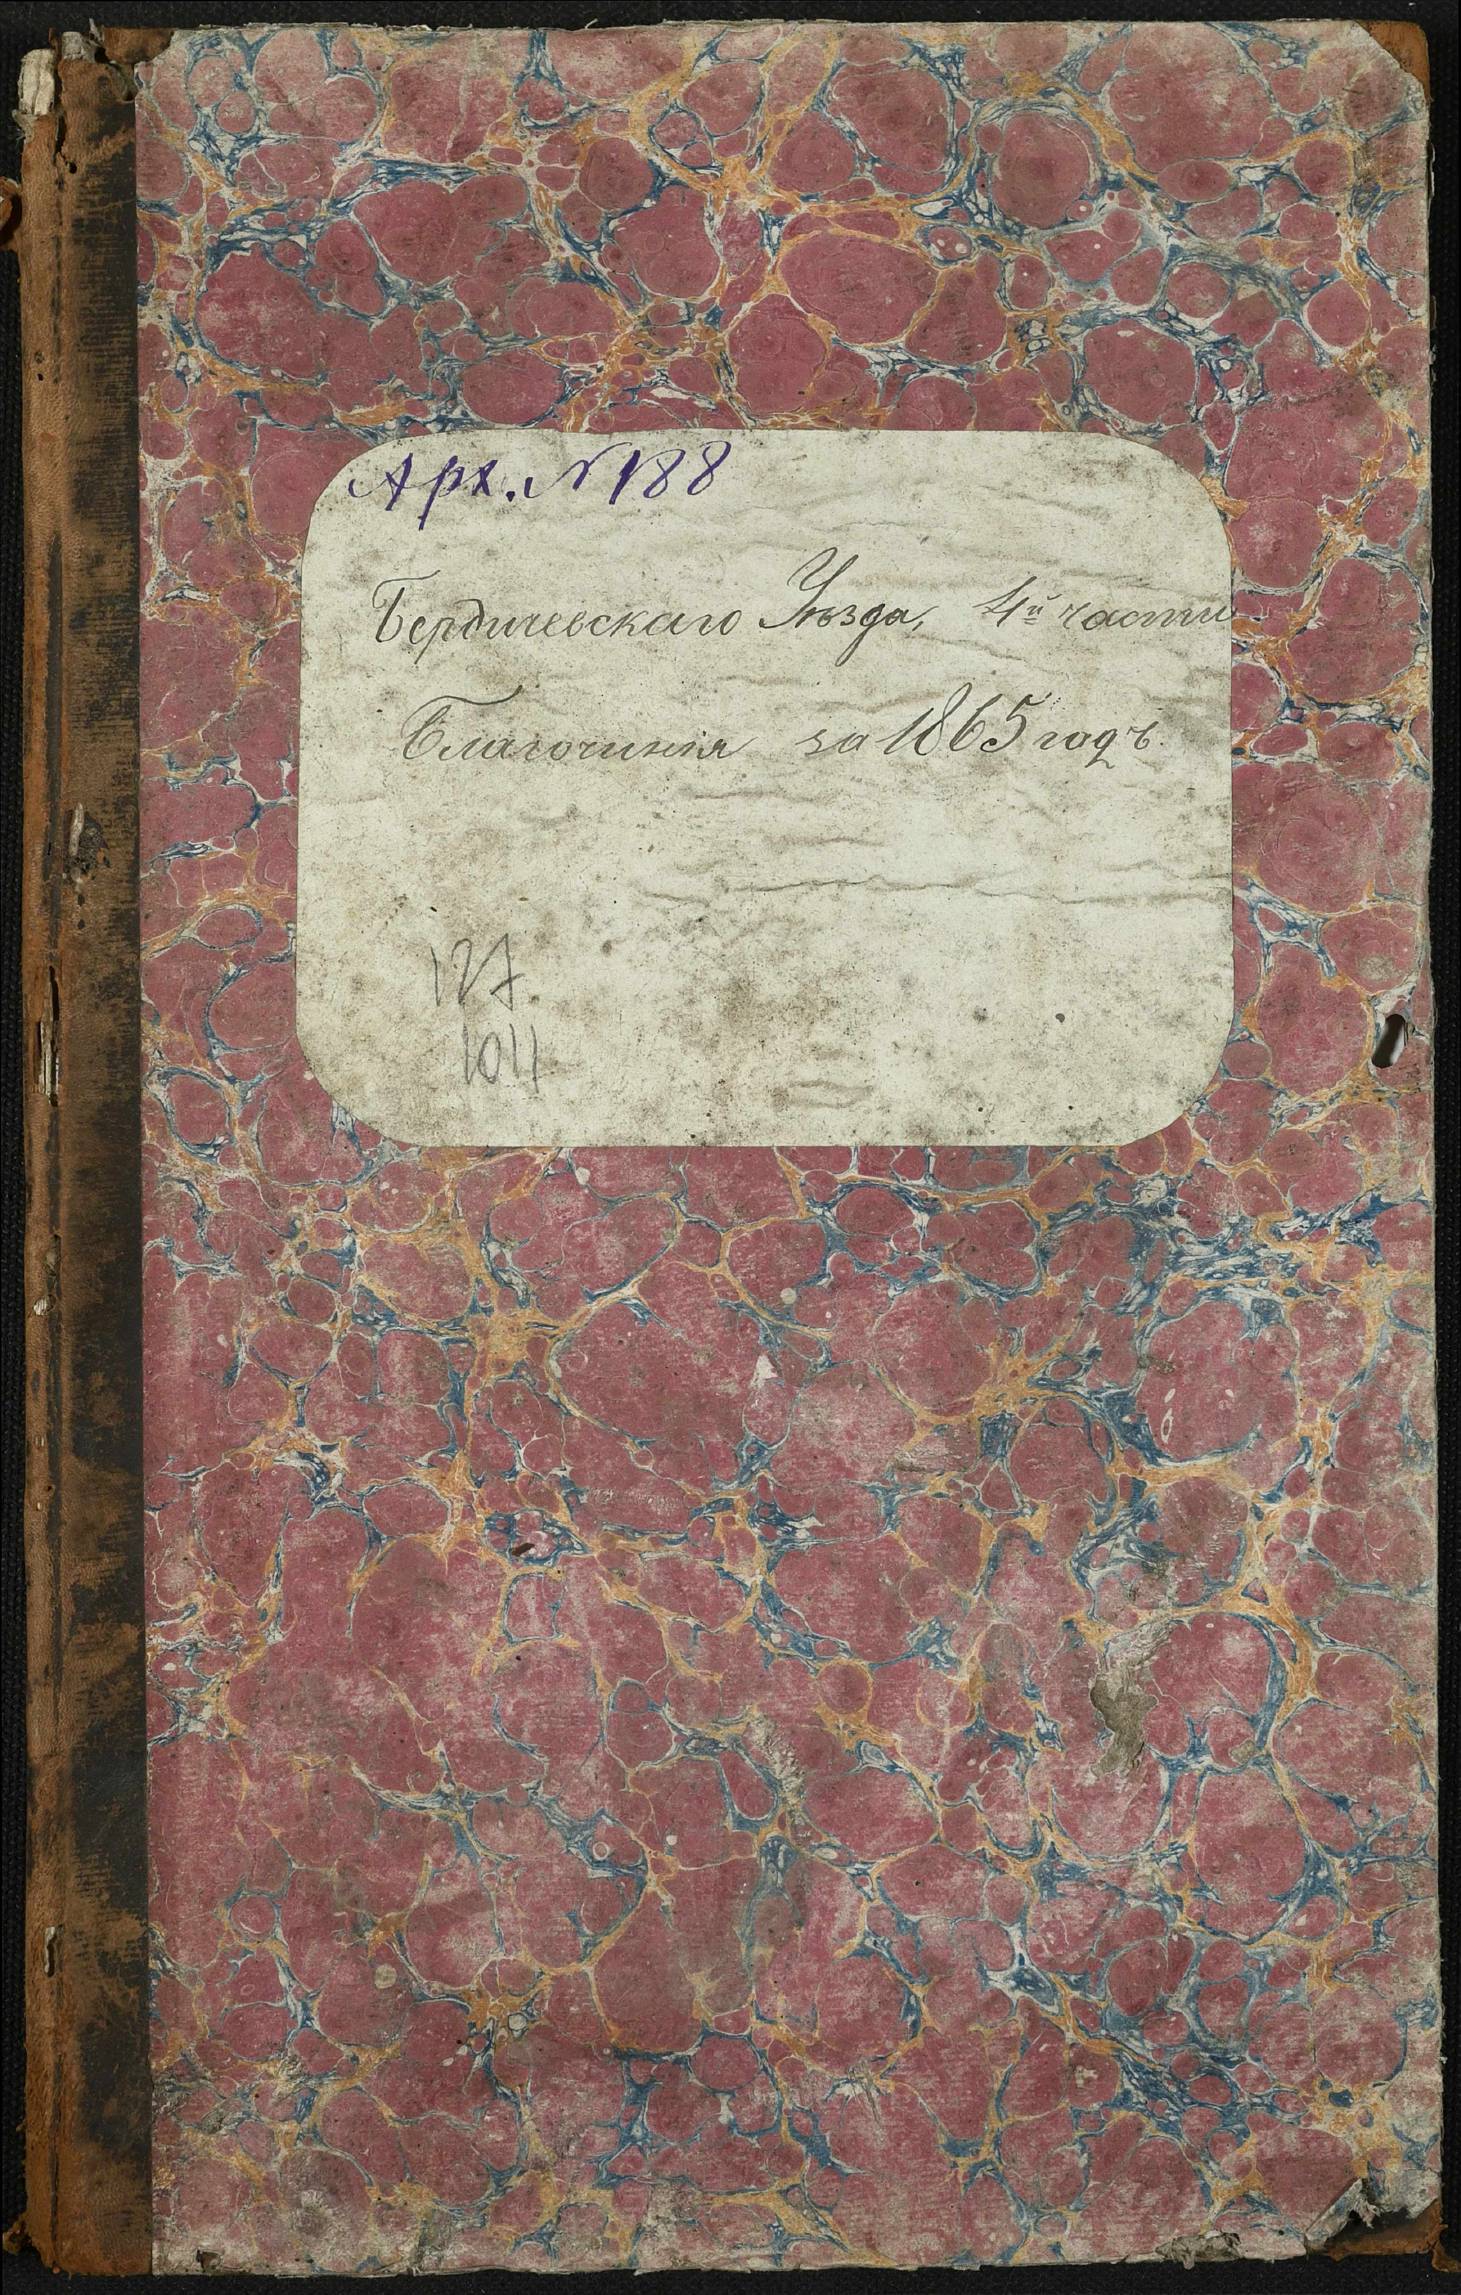 Арх. № 188
Бердичевскаго Уѣзда, 4й части
Благочинія за 1865 годъ.
127
1011